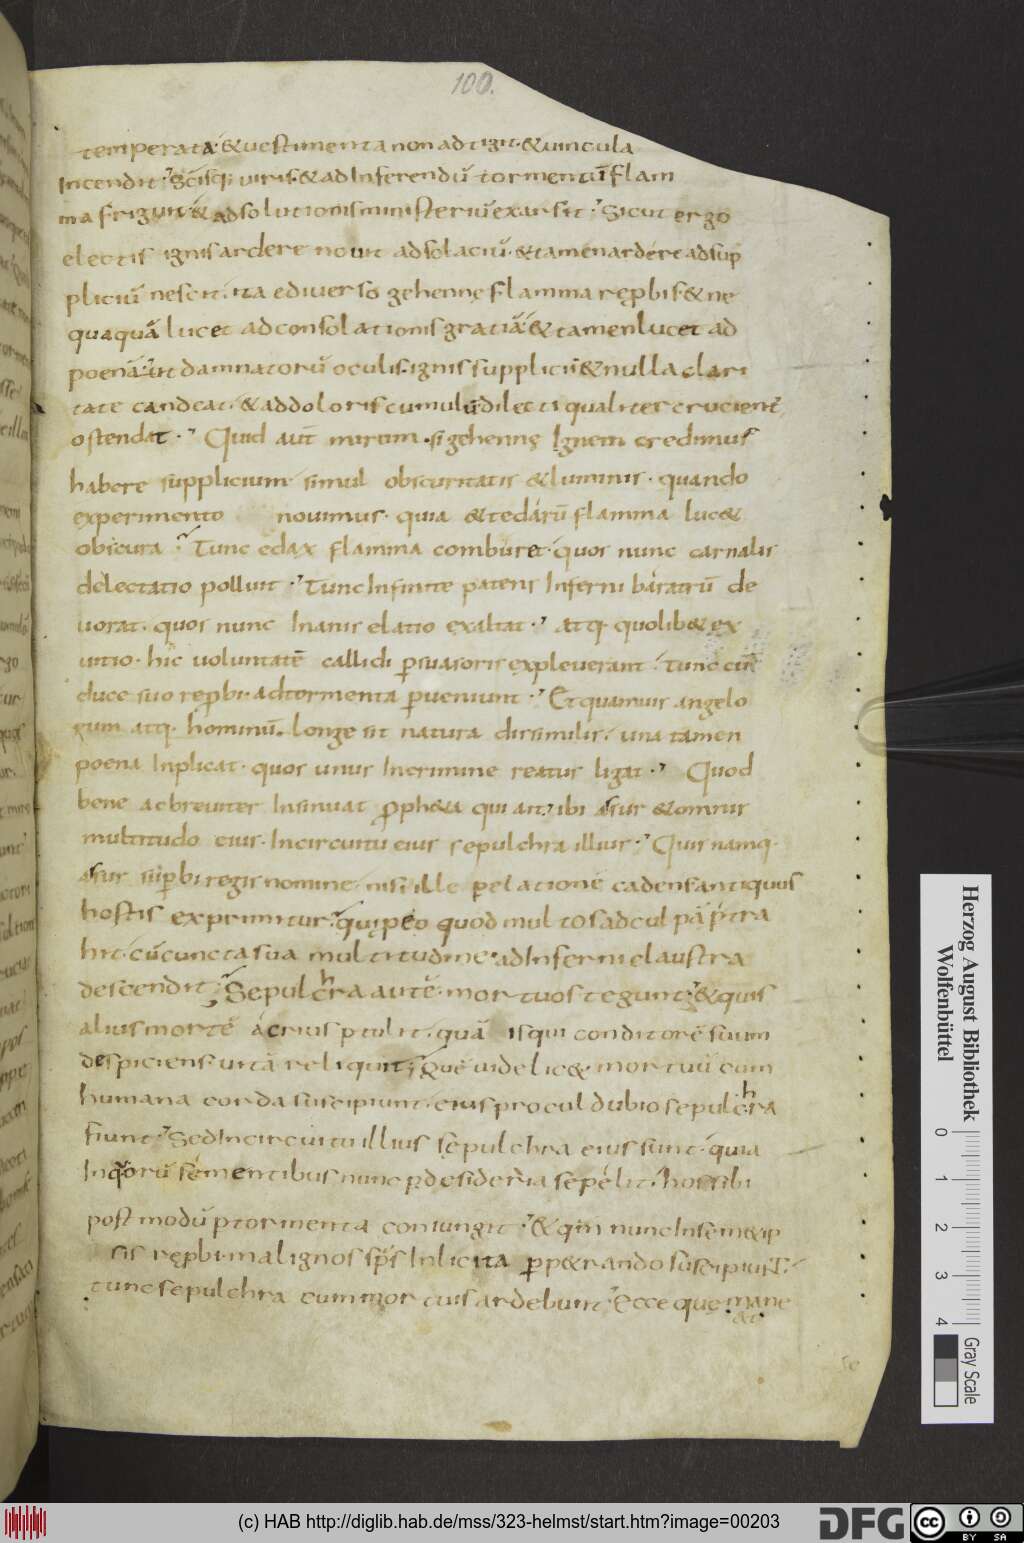 100.
temperata. & uestimenta non adtigit. & uincula
Incendit. Scīsq; uiris. & ad Inferendū tormentū flam
ma friguit. & ad solutionis ministeriū exarsit. Sicut ergo
electis ignis ardere nouit ad solaciū. & tamen ardere ad sup
pliciū nescit. ita ediuerso gehennę flamma ręprbis. & ne
quaquā lucet ad consolationis gratiā. & tamen lucet ad
poenā. ut damnatorū oculis. ignis supplicii & nulla clari
tate candeat. & ad doloris cumulū. dilecti qualiter crucient,
ostendat. Quid aut mirum. si gehennę Ignem credimus
habere supplicium simul obscuritatis & luminis. quando
experimento nouimus. quia & tedarū flamma luc&
obscura. Tunc edax flamma comburet. quos nunc carnalis
delectatio polluit. Tunc Infinite patens Inferni baratrū de
uorat. quos nunc Inanis elatio exaltat. Atq. quolib& ex
uitio. hic uoluntatē callidi psuasoris expleuerant. tunc cū
duce suo reprbi. ad tormenta pueniunt. Et quamuis angelo
rum atq. hominū. longe sit natura dissimilis. una tamen
poena Inplicat. quos unus In crimine reatus ligat. Quod
bene ac breuiter Insinuat proph&a qui ait. ibi assur & omnis
multitudo eius. In circuitu eius sepulchra illius. Quis namq.
assur superbi regis nomine. nisi ille p elatione cadens antiquus
hostis exprimitur. qui p eo quod multos ad culpā ptra
hit. cū cuncta sua multitudine. ad Inferni claustra
descendit. Sepulchra autē. mortuos tegunt. & quis
alius mortē acrius ptulit. quā is qui conditorē suum
despiciens uitā reliquit. Quē uidelic& mortuū cum
humana corda suscipiunt. eius procul dubio sepulchra
fiunt. Sed In circuitu illius sepulchra eius sunt. quia
In quorū se mentibus nunc p desideria sepelit. hos sibi
postmodū p tormenta coniungit. & qm nunc In sem&ip
sis ręprbi. malignos sps Inlicita pp&rando suscipiunt.
tunc sepulchra cum mortuis ardebunt. Ecce que mane
at
Herzog August Bibliothek
Wolfenbüttel
0 1 2 3 4
Gray Scale
(c) HAB http://diglib.hab.de/mss/323-helmst/start.htm?image=00203
DFG
cc BY SA